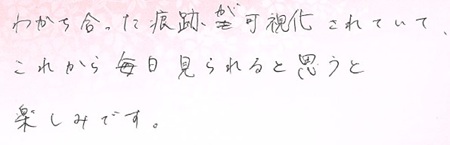 わかち合った痕跡が可視化されていて、
これから毎日見られると思うと
楽しみです。